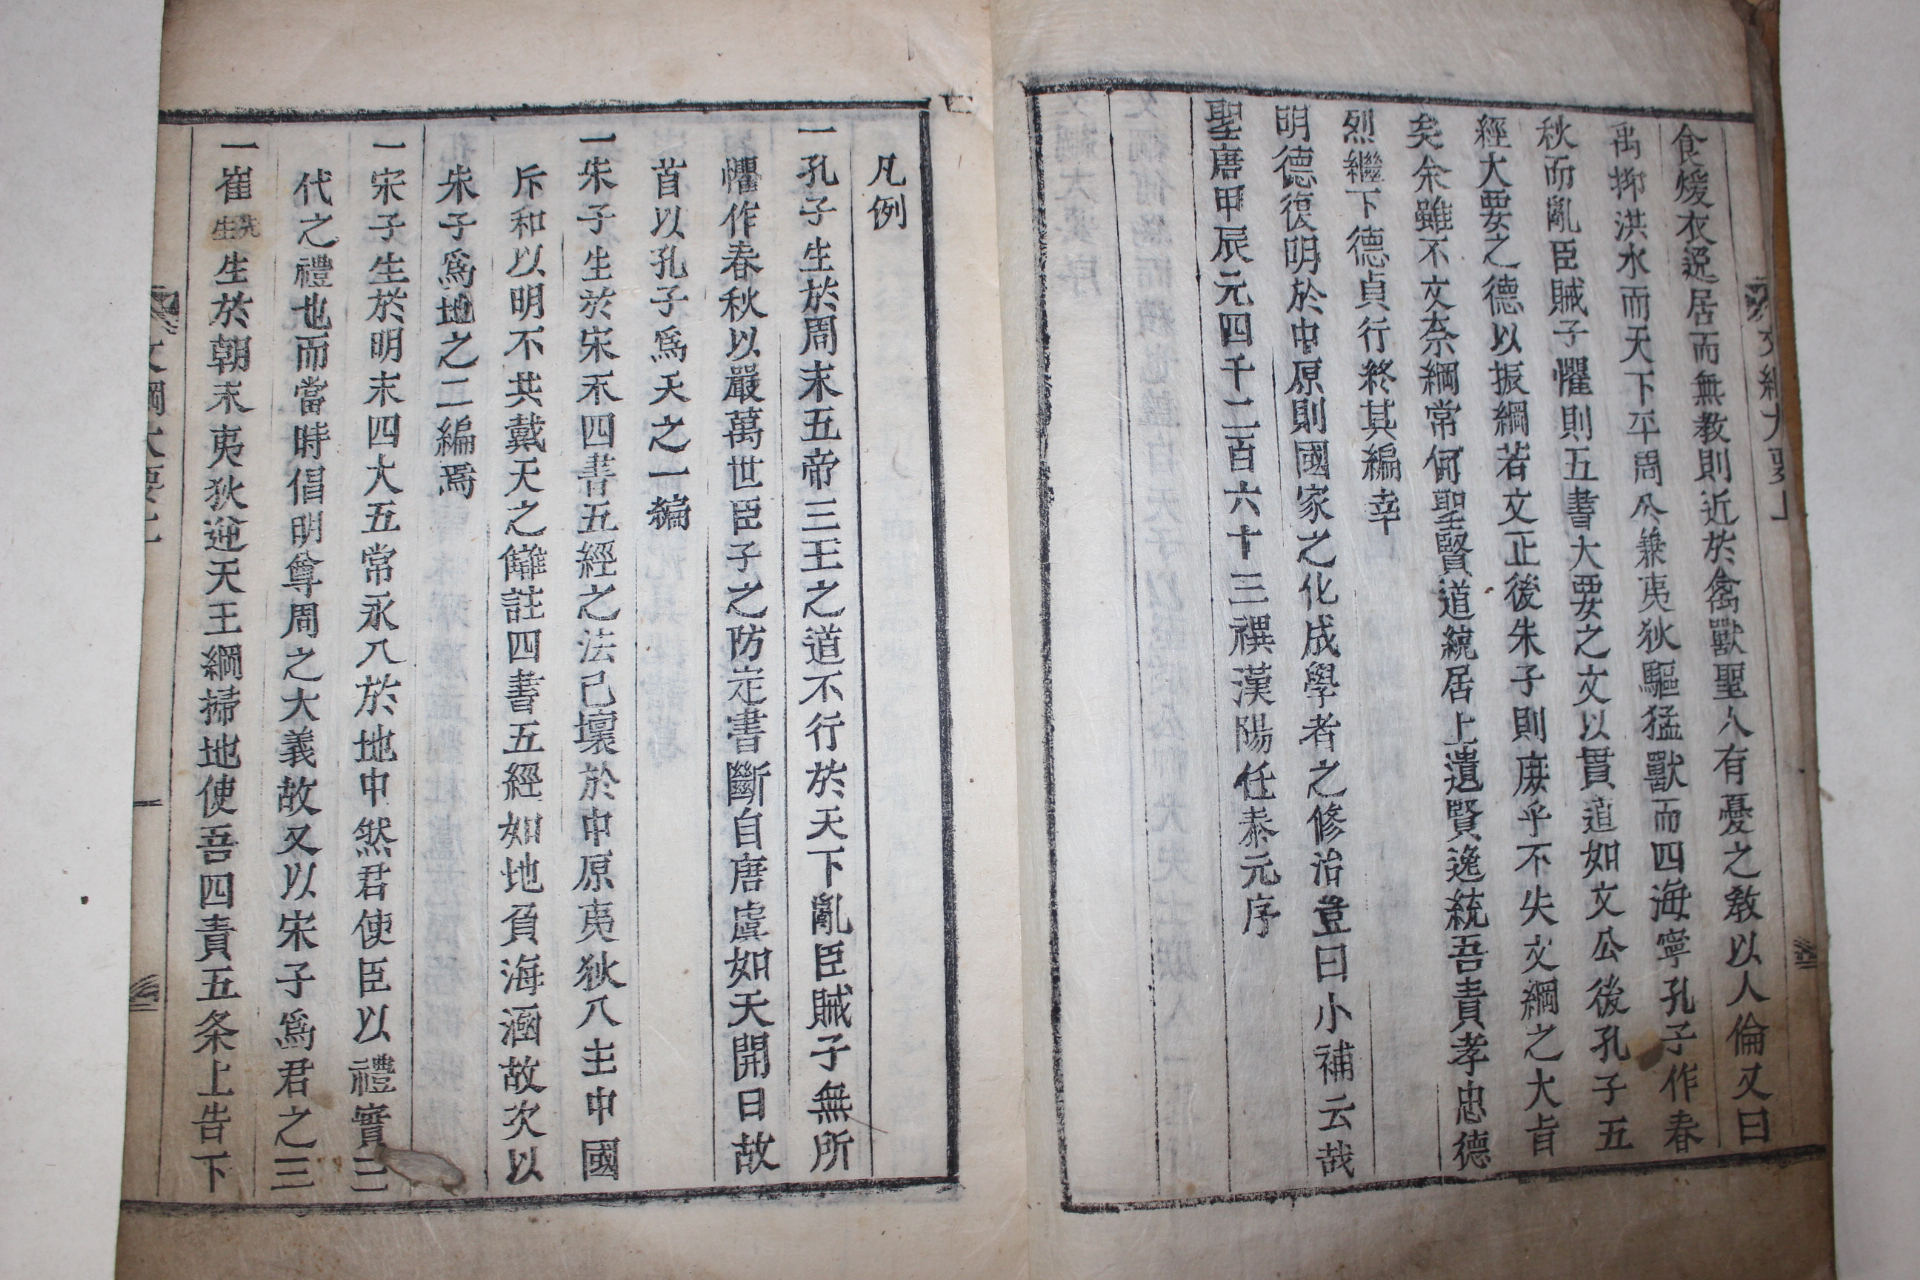 食煖衣逸居而無教則近於禽獸聖人有憂之敎以人倫又曰
禹抑洪水而天下平周公兼夷狄驅猛獸而四海寧孔子作春
秋而亂臣賊子懼則五書大要之文以貫道如文公後孔子五
經大要之德以振綱若文正後朱子則庶乎不失文綱之大旨
矣余雖不文奈綱常何聖賢道統居上遺賢逸統吾責孝忠德
烈繼下德貞行終其編幸
明德復明於中原則國家之化成學者之修治豈曰小補云哉
聖唐甲辰元四千二百六十三禩漢陽任泰元序
文綱大要上
凡例
一孔子生於周末五帝三王之道不行於天下亂臣賊子無所
懼作春秋以嚴萬世臣子之防定書斷自唐虞如天開日故
首以孔子爲天之一編
一朱子生於宋末四書五經之法已壞於中原夷狄八主中國
斥和以明不共戴天之讎註四書五經如地負海涵故次以
朱子爲地之二編焉
一宋子生於明末四大五常永入於地中然君使臣以禮實三
代之禮也而當時倡明尊周之大義故又以宋子爲君之三
一崔先生生於朝末夷狄迎天王綱掃地使吾四責五条上告下
文綱大要上
一